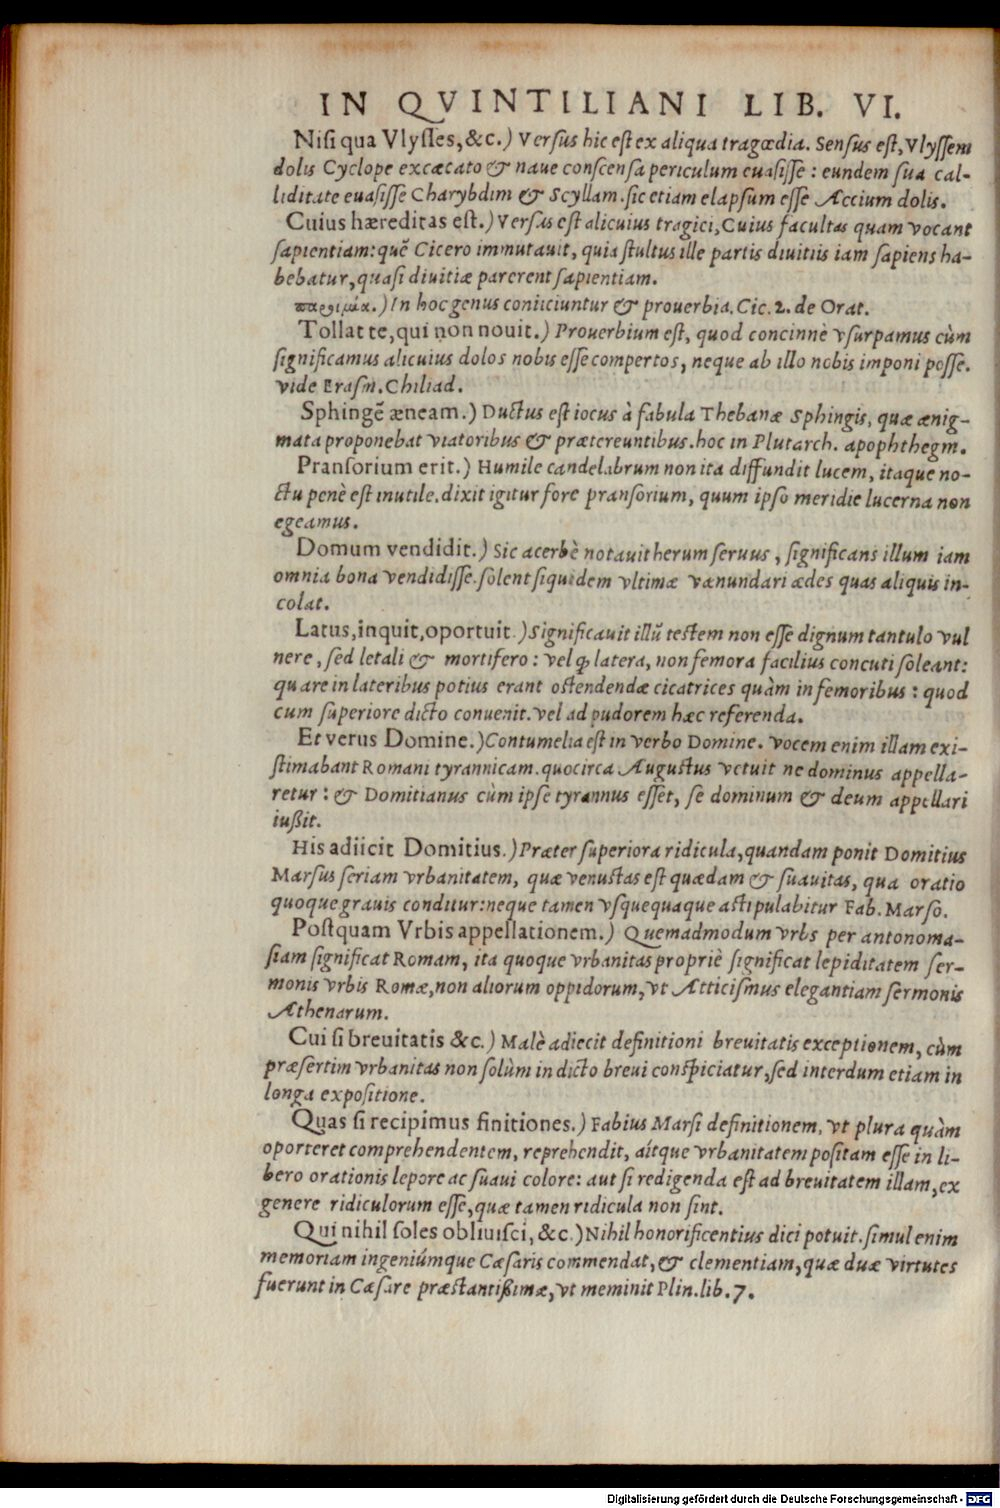 IN QVINTILIANI LIB. VI.
Nisi qua Vlysses,&c.) Versus hic est ex aliqua tragœdia. Sensus est, Vlyssem
dolis Cyclope excæcato & naue conscensa periculum euasisse : eundem sua cal-
liditate euasisse Charybdim & Scyllam. sic etiam elapsum esse Accium dolis.
Cuius hæreditas est.) Versus est alicuius tragici, Cuius facultas quam vocant
sapientiam: quẽ Cicero immutauit, quia stultus ille partis diuitiis iam sapiens ha-
bebatur, quasi diuitiæ parerent sapientiam.
παροιμία.) In hoc genus coniiciuntur & prouerbia. Cic. 2. de Orat.
Tollat te, qui non nouit.) Prouerbium est, quod concinnè vsurpamus cùm
significamus alicuius dolos nobis esse compertos, neque ab illo nobis imponi posse.
vide Erasm. Chiliad.
Sphingẽ æneam.) Ductus est iocus à fabula Thebanæ Sphingis, quæ ænig-
mata proponebat viatoribus & prætereuntibus. hoc in Plutarch. apophthegm.
Pransorium erit.) Humile candelabrum non ita diffundit lucem, itaque no-
ctu penè est inutile. dixit igitur fore pransorium, quum ipso meridie lucerna non
egeamus.
Domum vendidit.) Sic acerbè notauit herum seruus, significans illum iam
omnia bona vendidisse. solent siquidem vltimæ vænundari ædes quas aliquis in-
colat.
Latus, inquit, oportuit.) Significauit illũ testem non esse dignum tantulo vul
nere, sed letali & mortifero : vel ꝙ latera, non femora facilius concuti soleant:
quare in lateribus potius erant ostendendæ cicatrices quàm in femoribus : quod
cum superiore dicto conuenit. vel ad pudorem hæc referenda.
Et verus Domine.) Contumelia est in verbo Domine. vocem enim illam exi-
stimabant Romani tyrannicam. quocirca Augustus vetuit ne dominus appella-
retur : & Domitianus cùm ipse tyrannus esset, se dominum & deum appellari
iußit.
His adiicit Domitius.) Præter superiora ridicula, quandam ponit Domitius
Marsus seriam vrbanitatem, quæ venustas est quædam & suauitas, qua oratio
quoque grauis conditur: neque tamen vsquequaque astipulabitur Fab. Marso.
Postquam Vrbis appellationem.) Quemadmodum vrbs per antonoma-
siam significat Romam, ita quoque vrbanitas propriè significat lepiditatem ser-
monis vrbis Romæ, non aliorum oppidorum, vt Atticismus elegantiam sermonis
Athenarum.
Cui si breuitatis &c.) Malè adiecit definitioni breuitatis exceptionem, cùm
præsertim vrbanitas non solùm in dicto breui conspiciatur, sed interdum etiam in
longa expositione.
Quas si recipimus finitiones.) Fabius Marsi definitionem, vt plura quàm
oporteret comprehendentem, reprehendit, aítque vrbanitatem positam esse in li-
bero orationis lepore ac suaui colore: aut si redigenda est ad breuitatem illam, ex
genere ridiculorum esse, quæ tamen ridicula non sint.
Qui nihil soles obliuisci, &c.) Nihil honorificentius dici potuit. simul enim
memoriam ingeniúmque Cæsaris commendat, & clementiam, quæ duæ virtutes
fuerunt in Cæsare præstantißimæ, vt meminit Plin. lib. 7.
Digitalisierung gefördert durch die Deutsche Forschungsgemeinschaft - DFG